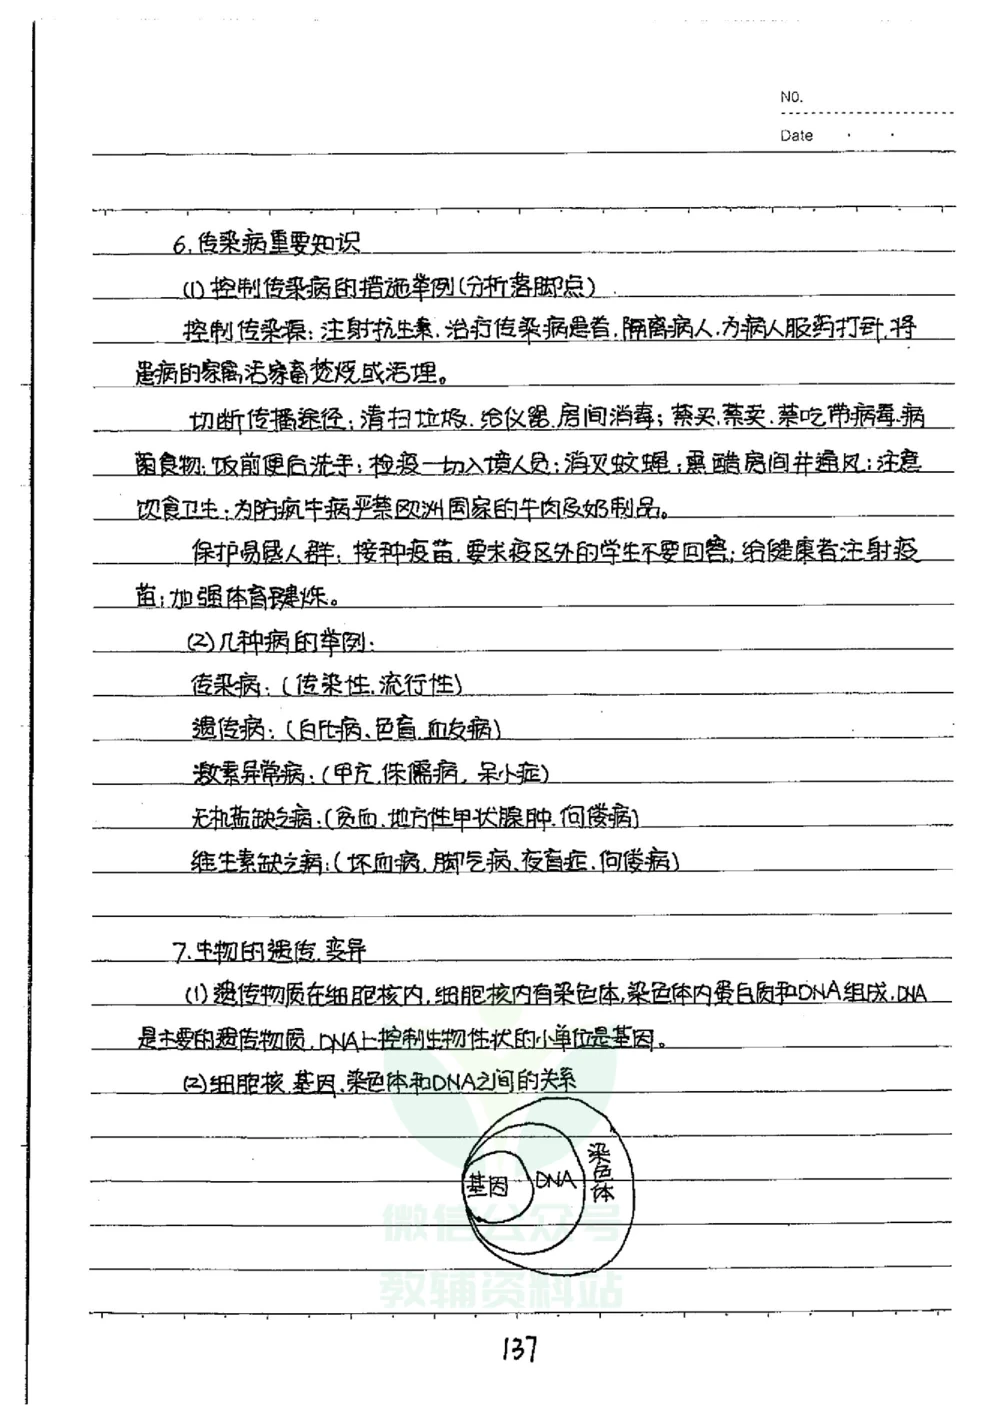 NO.
Date
6.传染病重要知识
(1)控制传染病的措施举例(分析落脚点)
控制传染源:注射抗生素.治疗传染病患者.隔离病人.为病人服药打针.将
患病的家禽活家畜焚烧或活埋。
切断传播途径:清扫垃圾.给仪器.房间消毒;禁买.禁卖.禁吃带病毒.病
菌食物;饭前便后洗手;检疫一切入境人员;消灭蚊蝇;熏醋房间并通风;注意
饮食卫生;为防疯牛病严禁欧洲国家的牛肉及奶制品。
保护易感人群:接种疫苗.要求疫区外的学生不要回家;给健康者注射疫
苗;加强体育锻炼。
(2)几种病的举例:
传染病:(传染性.流行性)
遗传病:(白化病、色盲.血友病)
激素异常病:(甲亢.侏儒病,呆小症)
无机盐缺乏病:(贫血.地方性甲状腺肿.佝偻病)
维生素缺乏病:(坏血病.脚气病、夜盲症.佝偻病)
7.生物的遗传.变异
(1)遗传物质在细胞核内.细胞核内有染色体,染色体内蛋白质和DNA组成.DNA
是主要的遗传物质.DNA上控制生物性状的小单位是基因。
(2)细胞核.基因.染色体和DNA之间的关系
基因 DNA 染色体
微信公众号
教辅资料站
137